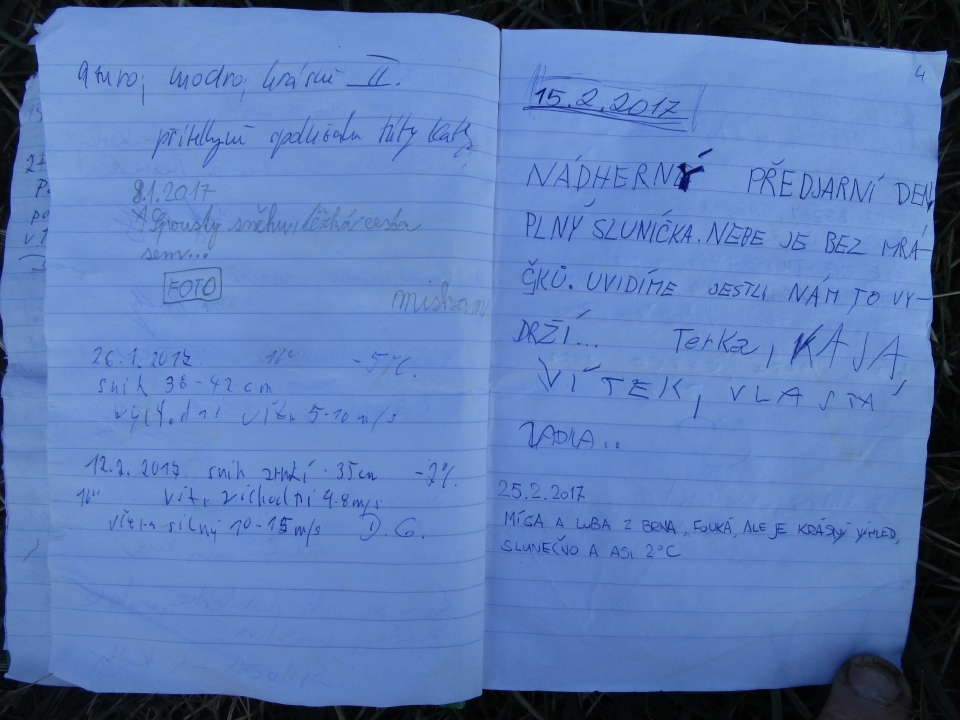 modro, krásně II.
přítelkyní
8.1.2017
Spousty sněhu, těžká cesta
sem...
FOTO
miskam
26.1.2017 16⁰⁰ -5°C.
sníh 38-42 cm
východní vítr 5-10 m/s
12.2.2017 sníh zrnší 35cm -2°C.
16⁰⁰ vítr východní 4-8m/s
včera silný 10-15 m/s D.G.
4
15.2.2017
NÁDHERNÝ PŘEDJARNÍ DEN,
PLNÝ SLUNÍČKA. NEBE JE BEZ MRÁ-
ČKŮ. UVIDÍME JESTLI NÁM TO VY-
DRŽÍ... Terka, KÁJA,
VÍTEK, VLASTA
25.2.2017
MÍŠA A LUBA Z BRNA, FOUKÁ, ALE JE KRÁSNÝ VÝHLED,
SLUNEČNO A ASI 2°C